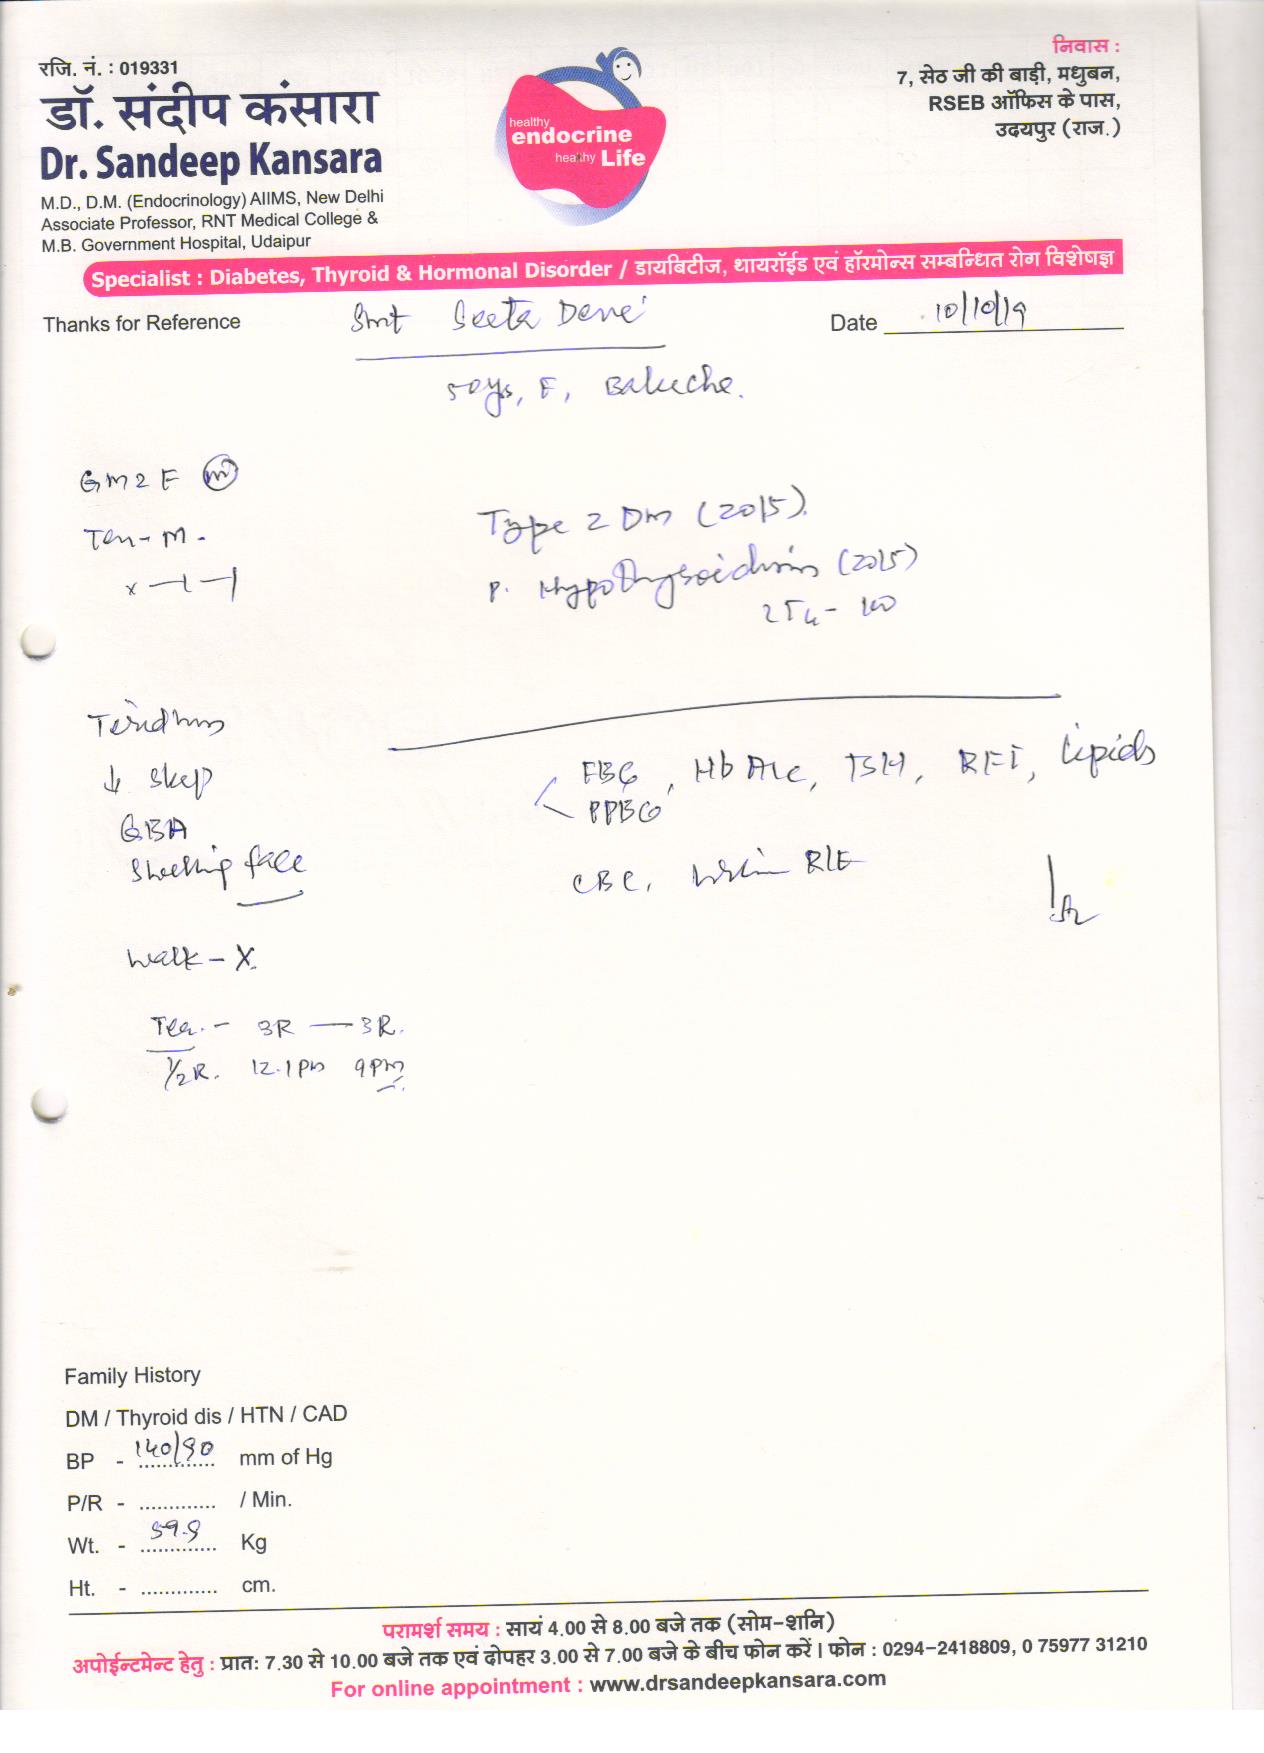 रजि. नं. : 019331
डॉ. संदीप कंसारा
Dr. Sandeep Kansara
M.D., D.M. (Endocrinology) AIIMS, New Delhi
Associate Professor, RNT Medical College &
M.B. Government Hospital, Udaipur
healthy
endocrine
healthy Life
निवास :
7, सेठ जी की बाड़ी, मधुबन,
RSEB ऑफिस के पास,
उदयपुर (राज.)
Specialist : Diabetes, Thyroid & Hormonal Disorder / डायबिटीज, थायरॉईड एवं हॉरमोन्स सम्बन्धित रोग विशेषज्ञ
Thanks for Reference
Smt Seeta Devi
Date 10/10/19
50ys, F,
GM2 F
Ten - M.
x —1 —1
Type 2 DM (2015).
P. Hypothyroidism (2015)
100
↓ sleep
GBA
face
walk - X.
Tea. - 3R — 3R.
1/2 R. 12.1 pm 9 pm
FBG, HbA1c, TSH, RFT, Lipids
PPBG
CBC, R/E
Family History
DM / Thyroid dis / HTN / CAD
BP - 140/90 mm of Hg
P/R - ............. / Min.
Wt. - 59.9 Kg
Ht. - ............. cm.
परामर्श समय : सायं 4.00 से 8.00 बजे तक (सोम-शनि)
अपोईन्टमेन्ट हेतु : प्रातः 7.30 से 10.00 बजे तक एवं दोपहर 3.00 से 7.00 बजे के बीच फोन करें। फोन : 0294-2418809, 0 75977 31210
For online appointment : www.drsandeepkansara.com